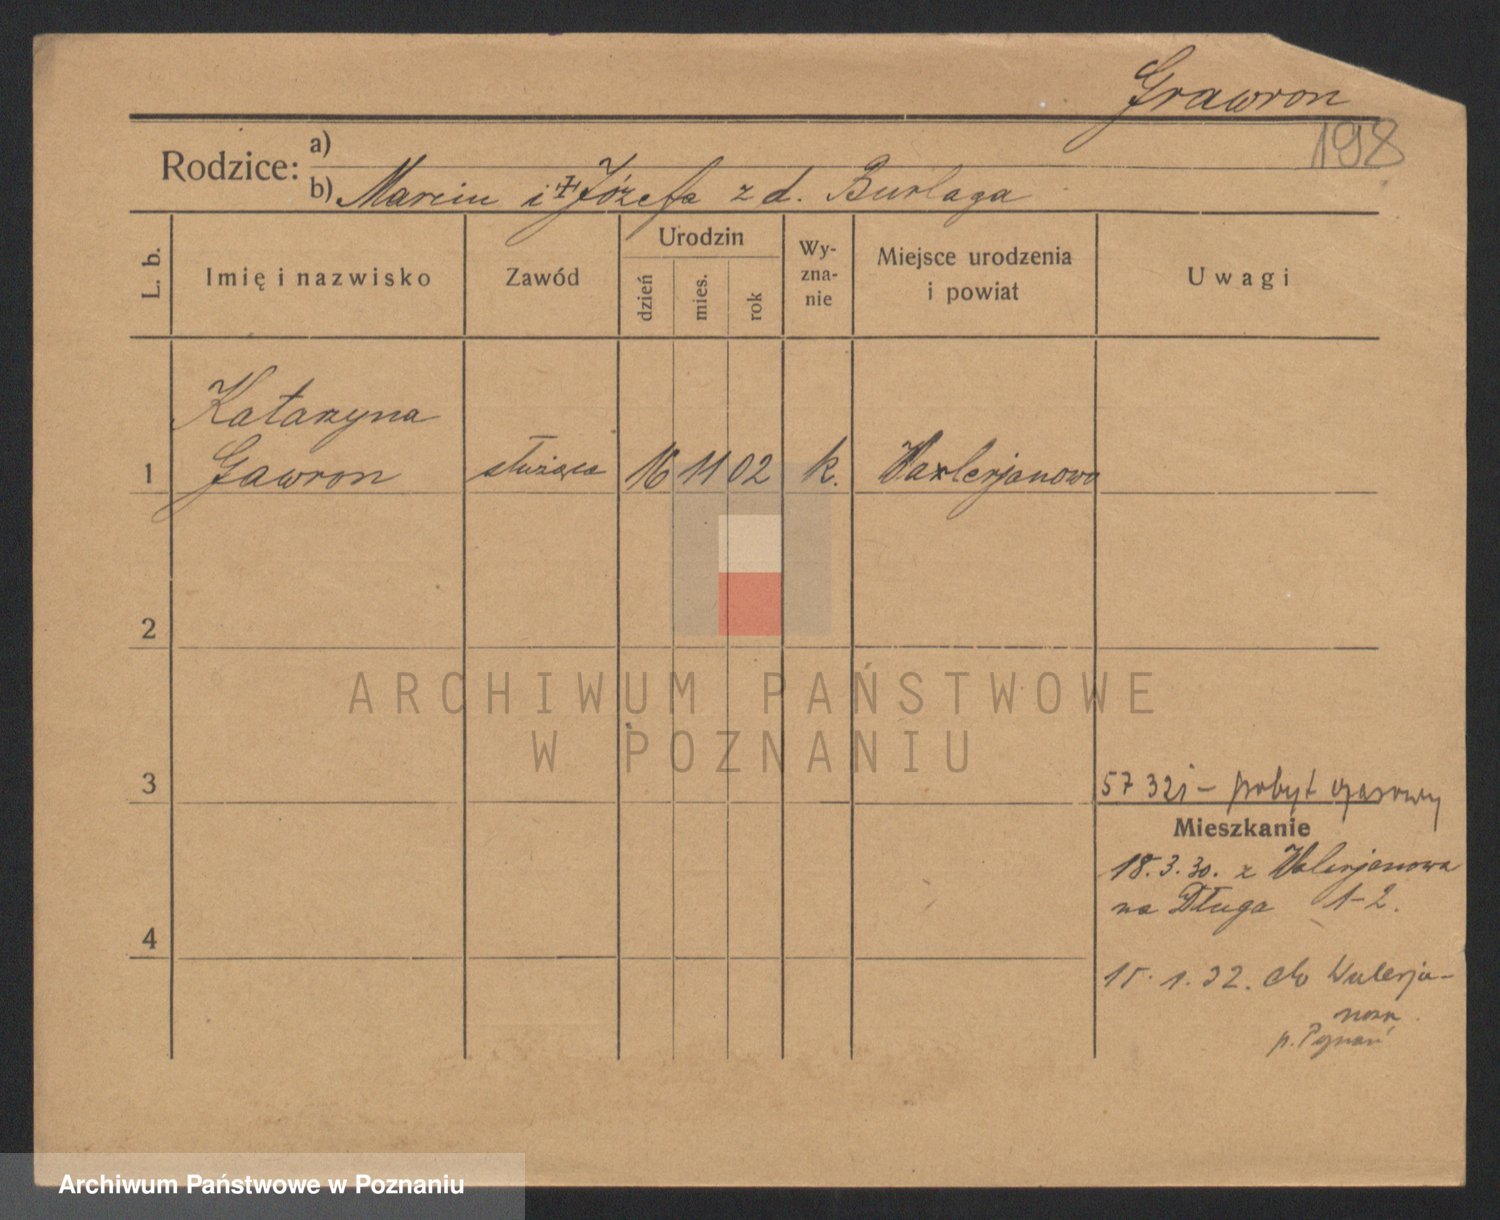 Gawron
198
Rodzice: a)
b) Marcin i ‡ Józefa z d. Burlaga
L. b.
Imię i nazwisko
Zawód
Urodzin
dzień
mies.
rok
Wy-
zna-
nie
Miejsce urodzenia
i powiat
Uwagi
Katarzyna
1 Gawron służąca 16 11 02 k. Walerjanowo
2
ARCHIWUM PAŃSTWOWE
W POZNANIU
3
57 32i – pobyt czasowy
Mieszkanie
18.3.30. z Walerjanowa
na Długa 1-2.
4
15.1.32. do Walerja-
nowa
p. Poznań
Archiwum Państwowe w Poznaniu